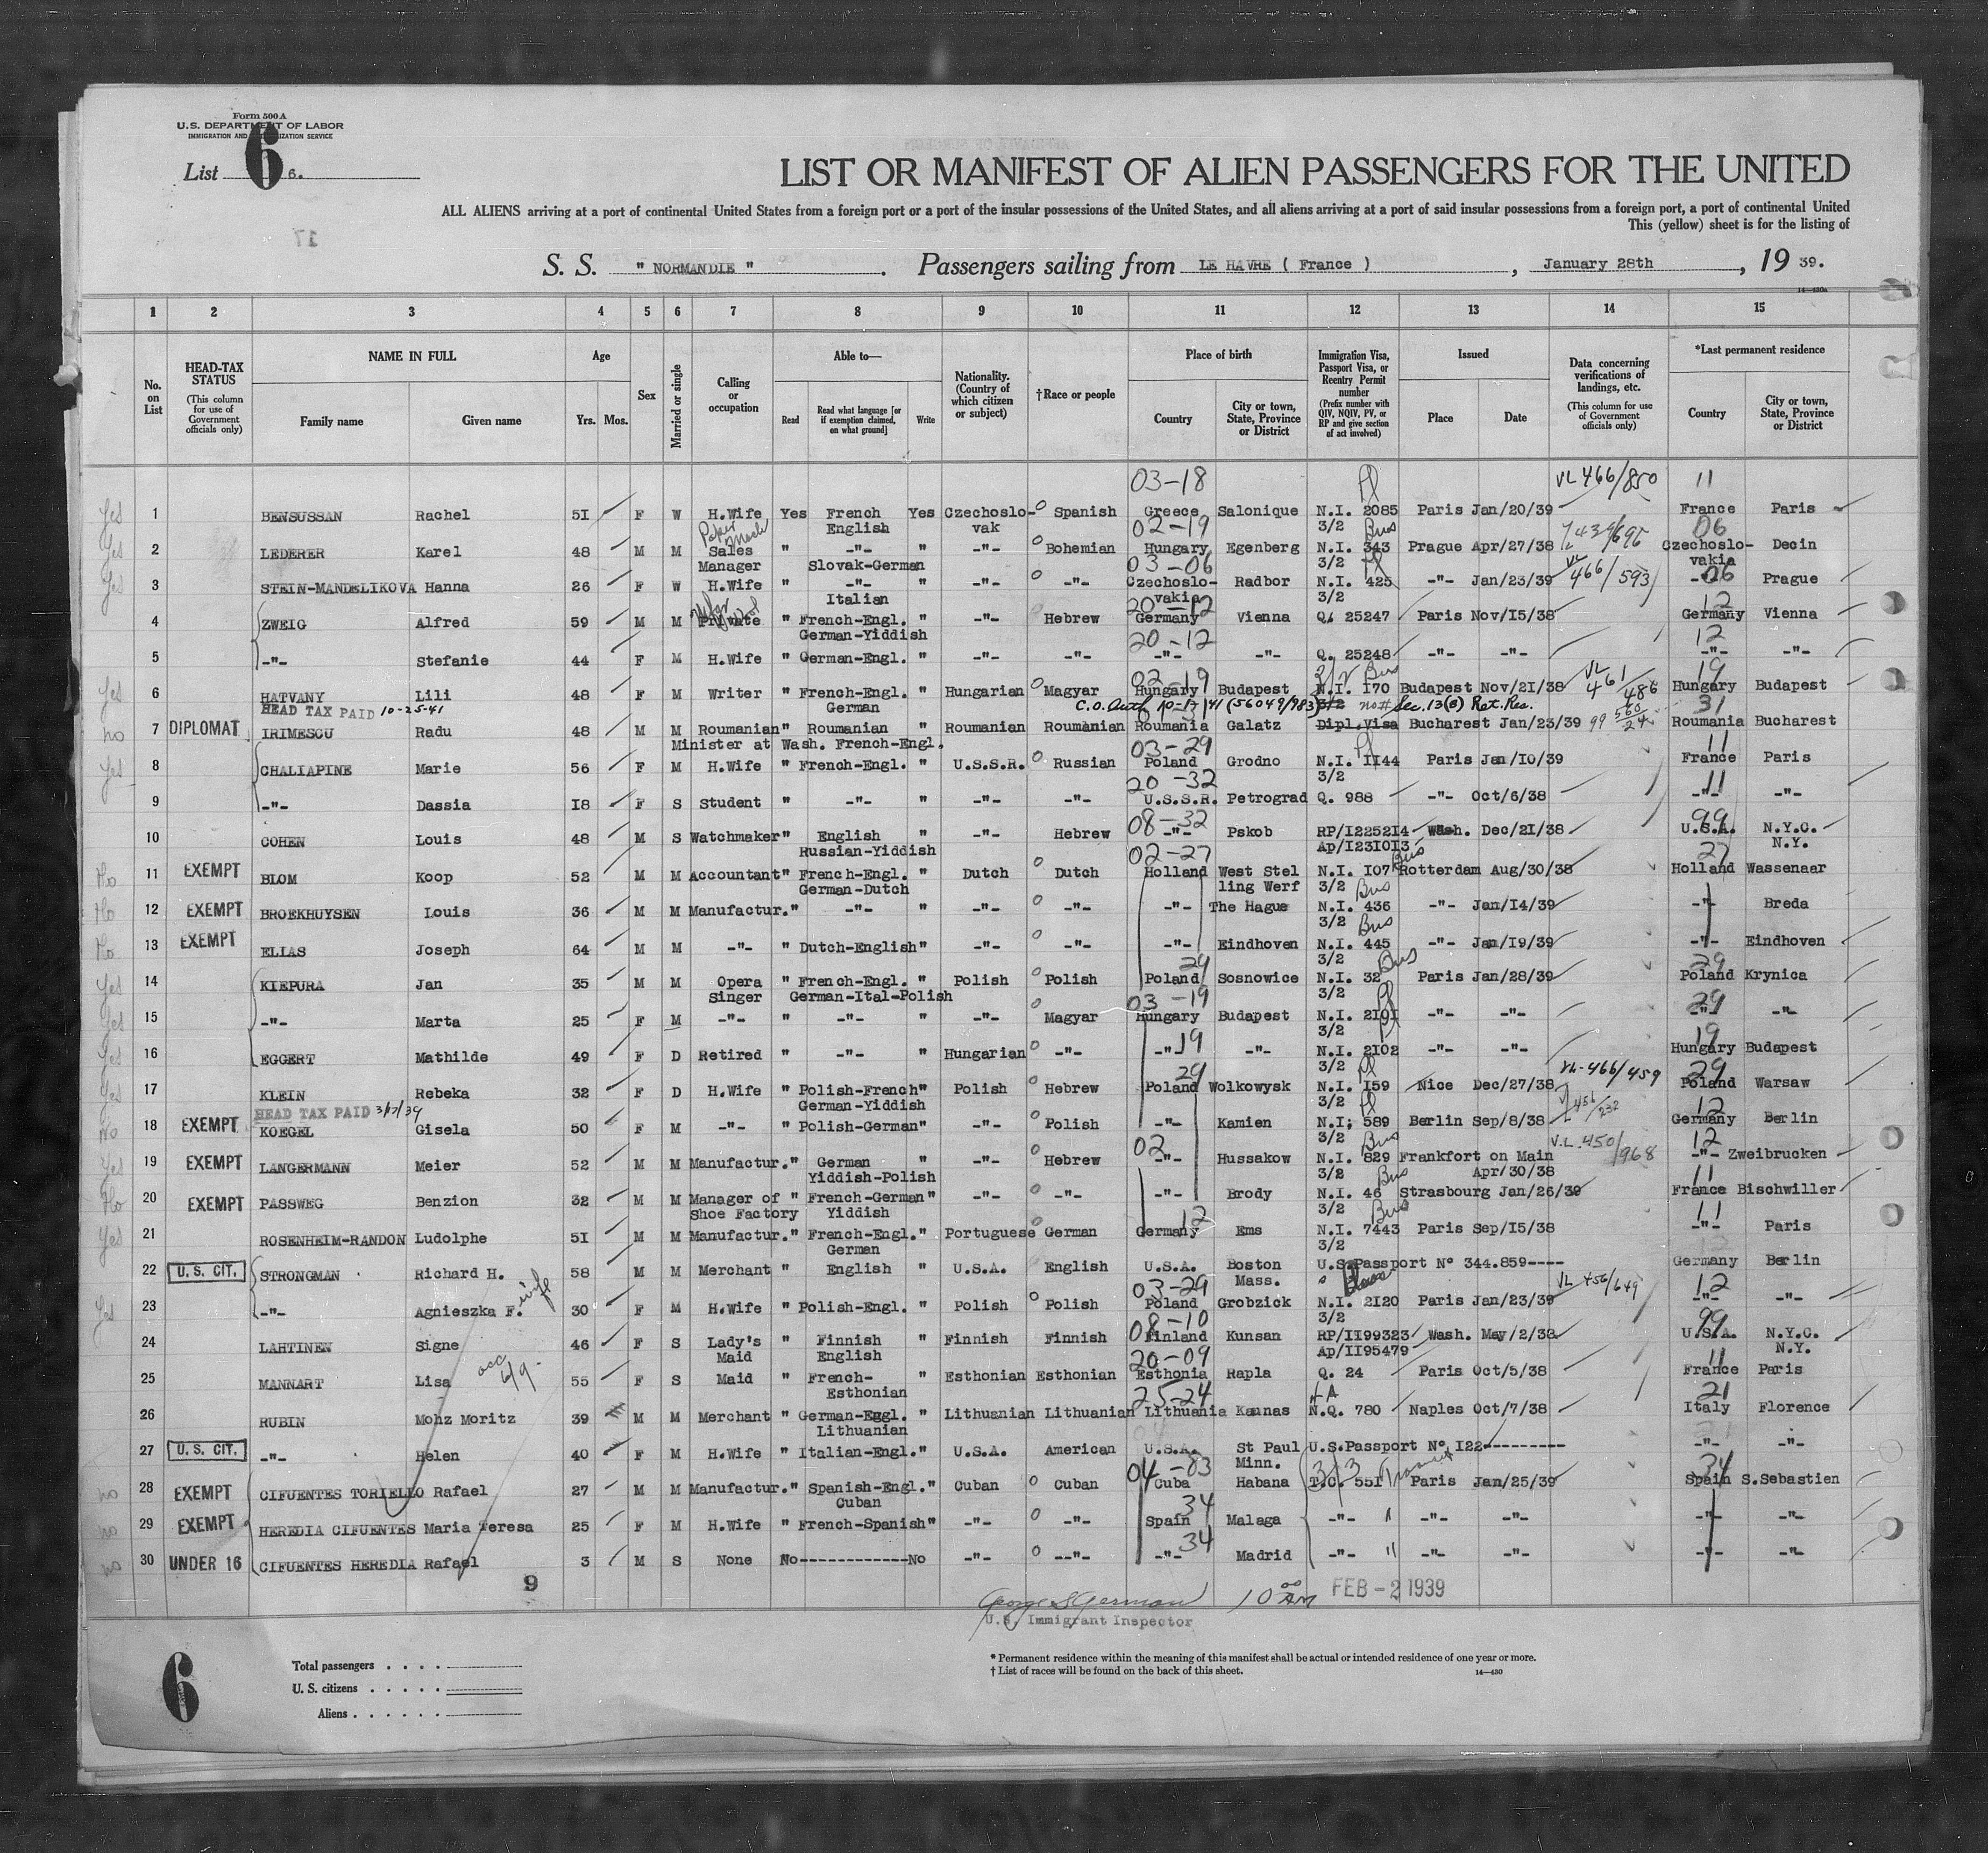 Form 500 A
U.S. DEPARTMENT OF LABOR
IMMIGRATION AND NATURALIZATION SERVICE
List 6 6.
LIST OR MANIFEST OF ALIEN PASSENGERS FOR THE UNITED
ALL ALIENS arriving at a port of continental United States from a foreign port or a port of the insular possessions of the United States, and all aliens arriving at a port of said insular possessions from a foreign port, a port of continental United
This (yellow) sheet is for the listing of
17
S. S. " NORMANDIE " . Passengers sailing from LE HAVRE ( France ) , January 28th , 19 39.
14—430a
1 2 3 4 5 6 7 8 9 10 11 12 13 14 15
No. on List
HEAD-TAX STATUS (This column for use of Government officials only)
NAME IN FULL Family name Given name
Age Yrs. Mos.
Sex
Married or single
Calling or occupation
Able to— Read Read what language [or if exemption claimed, on what ground] Write
Nationality. (Country of which citizen or subject)
†Race or people
Place of birth Country City or town, State, Province or District
Immigration Visa, Passport Visa, or Reentry Permit number (Prefix number with QIV, NQIV, PV, or RP and give section of act involved)
Issued Place Date
Data concerning verifications of landings, etc. (This column for use of Government officials only)
*Last permanent residence Country City or town, State, Province or District
03-18 VL 466/850 11
Yes 1 BENSUSSAN Rachel 51 F W H.Wife Yes French Yes Czechoslo- Spanish Greece Salonique N.I. 2085 Paris Jan/20/39 France Paris
English vak 02-19 3/2 Bus 06
Yes 2 LEDERER Karel 48 M M Sales " -"- " -"- Bohemian Hungary Egenberg N.I. 343 Prague Apr/27/38 Czechoslo- Decin
Manager Slovak-German 03-06 3/2 vakia
Yes 3 STEIN-MANDELIKOVA Hanna 26 F W H.Wife " -"- " -"- -"- Czechoslo- Radbor N.I. 425 -"- Jan/23/39 VL 466/593 -"- 06 Prague
Italian vakia 3/2
20-12 12
4 ZWEIG Alfred 59 M M Private " French-Engl. " -"- Hebrew Germany Vienna Q. 25247 Paris Nov/15/38 Germany Vienna
German-Yiddish 20-12 12
5 -"- Stefanie 44 F M H.Wife " German-Engl. " -"- -"- -"- -"- Q. 25248 -"- -"- -"- -"-
02-19 3/2 Bus VL 461/486 19
Yes 6 HATVANY Lili 48 F M Writer " French-Engl. " Hungarian Magyar Hungary Budapest N.I. 170 Budapest Nov/21/38 Hungary Budapest
HEAD TAX PAID 10-25-41 German C.O. Auth 10-17/41 (56049/983) 3/2 no # Sec. 13(b) Ret. Res. 31
no 7 DIPLOMAT IRIMESCU Radu 48 M M Roumanian " Roumanian " Roumanian Roumanian Roumania Galatz Dipl.Visa Bucharest Jan/23/39 99 560/24 Roumania Bucharest
Minister at Wash. French-Engl. 03-29 11
Yes 8 CHALIAPINE Marie 56 F M H.Wife " French-Engl. " U.S.S.R. Russian Poland Grodno N.I. 1144 Paris Jan/10/39 France Paris
20-32 3/2 11
9 -"- Dassia 18 F S Student " -"- " -"- -"- U.S.S.R. Petrograd Q. 988 -"- Oct/6/38 -"- -"-
08-32 99
10 COHEN Louis 48 M S Watchmaker " English " -"- Hebrew -"- Pskob RP/1225214 Wash. Dec/21/38 U.S.A. N.Y.C.
Russian-Yiddish 02-27 Ap/1231013 Bus 27 N.Y.
No 11 EXEMPT BLOM Koop 52 M M Accountant " French-Engl. " Dutch Dutch Holland West Stel N.I. 107 Rotterdam Aug/30/38 Holland Wassenaar
German-Dutch ling Werf 3/2 Bus
No 12 EXEMPT BROEKHUYSEN Louis 36 M M Manufactur. " -"- " -"- -"- -"- The Hague N.I. 436 -"- Jan/14/39 -"- Breda
3/2 Bus
No 13 EXEMPT ELIAS Joseph 64 M M -"- " Dutch-English " -"- -"- -"- Eindhoven N.I. 445 -"- Jan/19/39 -"- Eindhoven
29 3/2 Bus 29
Yes 14 KIEPURA Jan 35 M M Opera " French-Engl. " Polish Polish Poland Sosnowice N.I. 32 Paris Jan/28/39 Poland Krynica
Singer German-Ital-Polish 03-19 3/2 29
Yes 15 -"- Marta 25 F M -"- " -"- " -"- Magyar Hungary Budapest N.I. 2101 -"- -"- -"- -"-
19 3/2 19
Yes 16 EGGERT Mathilde 49 F D Retired " -"- " Hungarian -"- -"- -"- N.I. 2102 -"- -"- Hungary Budapest
29 3/2 VL-466/459 29
Yes 17 KLEIN Rebeka 32 F D H.Wife " Polish-French " Polish Hebrew Poland Wolkowysk N.I. 159 Nice Dec/27/38 Poland Warsaw
HEAD TAX PAID 3/17/39 German-Yiddish 3/2 VL 456/232 12
No 18 EXEMPT KOEGEL Gisela 50 F M -"- " Polish-German " -"- Polish -"- Kamien N.I. 589 Berlin Sep/8/38 Germany Berlin
02 3/2 Bus V.L. 450/968 12
Yes 19 EXEMPT LANGERMANN Meier 52 M M Manufactur. " German " -"- Hebrew -"- Hussakow N.I. 829 Frankfort on Main -"- Zweibrucken
Yiddish-Polish 3/2 Bus Apr/30/38 11
No 20 EXEMPT PASSWEG Benzion 32 M M Manager of " French-German " -"- -"- -"- Brody N.I. 46 Strasbourg Jan/26/39 France Bischwiller
Shoe Factory Yiddish 12 3/2 Bus 11
Yes 21 ROSENHEIM-RANDON Ludolphe 51 M M Manufactur. " French-Engl. " Portuguese German Germany Ems N.I. 7443 Paris Sep/15/38 -"- Paris
German 3/2
22 U. S. CIT. STRONGMAN Richard H. 58 M M Merchant " English " U.S.A. English U.S.A. Boston U.S.Passport N° 344.859---- Germany Berlin
wife 03-29 Mass. VL 456/649 12
Yes 23 -"- Agnieszka F. 30 F M H.Wife " Polish-Engl. " Polish Polish Poland Grobzick N.I. 2120 Paris Jan/23/39 -"- -"-
08-10 3/2 99
24 LAHTINEN Signe 46 F S Lady's " Finnish " Finnish Finnish Finland Kunsan RP/1199323 Wash. May/2/38 U.S.A. N.Y.C.
Maid English 20-09 Ap/1195479 11 N.Y.
25 MANNART Lisa 55 F S Maid " French- " Esthonian Esthonian Esthonia Rapla Q. 24 Paris Oct/5/38 France Paris
Esthonian 25-24 21
26 RUBIN Mohz Moritz 39 M M Merchant " German-Eggl. " Lithuanian Lithuanian Lithuania Kaunas N.Q. 780 Naples Oct/7/38 Italy Florence
Lithuanian
27 U. S. CIT. -"- Helen 40 F M H.Wife " Italian-Engl. " U.S.A. American U.S.A. St Paul U.S.Passport N° 122--------- -"- -"-
04-83 Minn. 3/3 Transit 34
no 28 EXEMPT CIFUENTES TORIELLO Rafael 27 M M Manufactur. " Spanish-Engl. " Cuban Cuban Cuba Habana T.C. 551 Paris Jan/25/39 Spain S.Sebastien
Cuban 34
no 29 EXEMPT HEREDIA CIFUENTES Maria Teresa 25 F M H.Wife " French-Spanish " -"- -"- Spain Malaga -"- -"- -"- -"- -"-
34
no 30 UNDER 16 CIFUENTES HEREDIA Rafael 3 M S None No-------------No -"- --"- -"- Madrid -"- " -"- -"- -"- -"-
9
George S German 10 00 AM FEB - 2 1939
U.S. Immigrant Inspector
6
Total passengers . . . .
U. S. citizens . . . . .
Aliens . . . . . .
* Permanent residence within the meaning of this manifest shall be actual or intended residence of one year or more.
† List of races will be found on the back of this sheet. 14—430